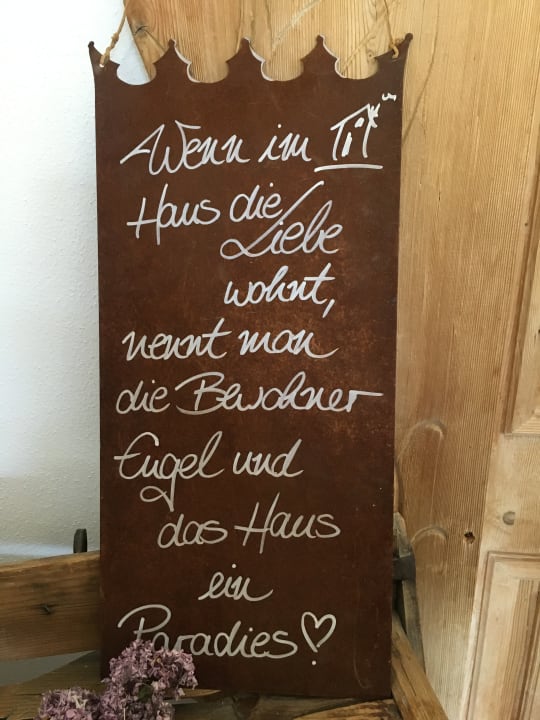 Wenn im
Haus die
Liebe
wohnt,
nennt man
die Bewohner
Engel und
das Haus
ein
Paradies!